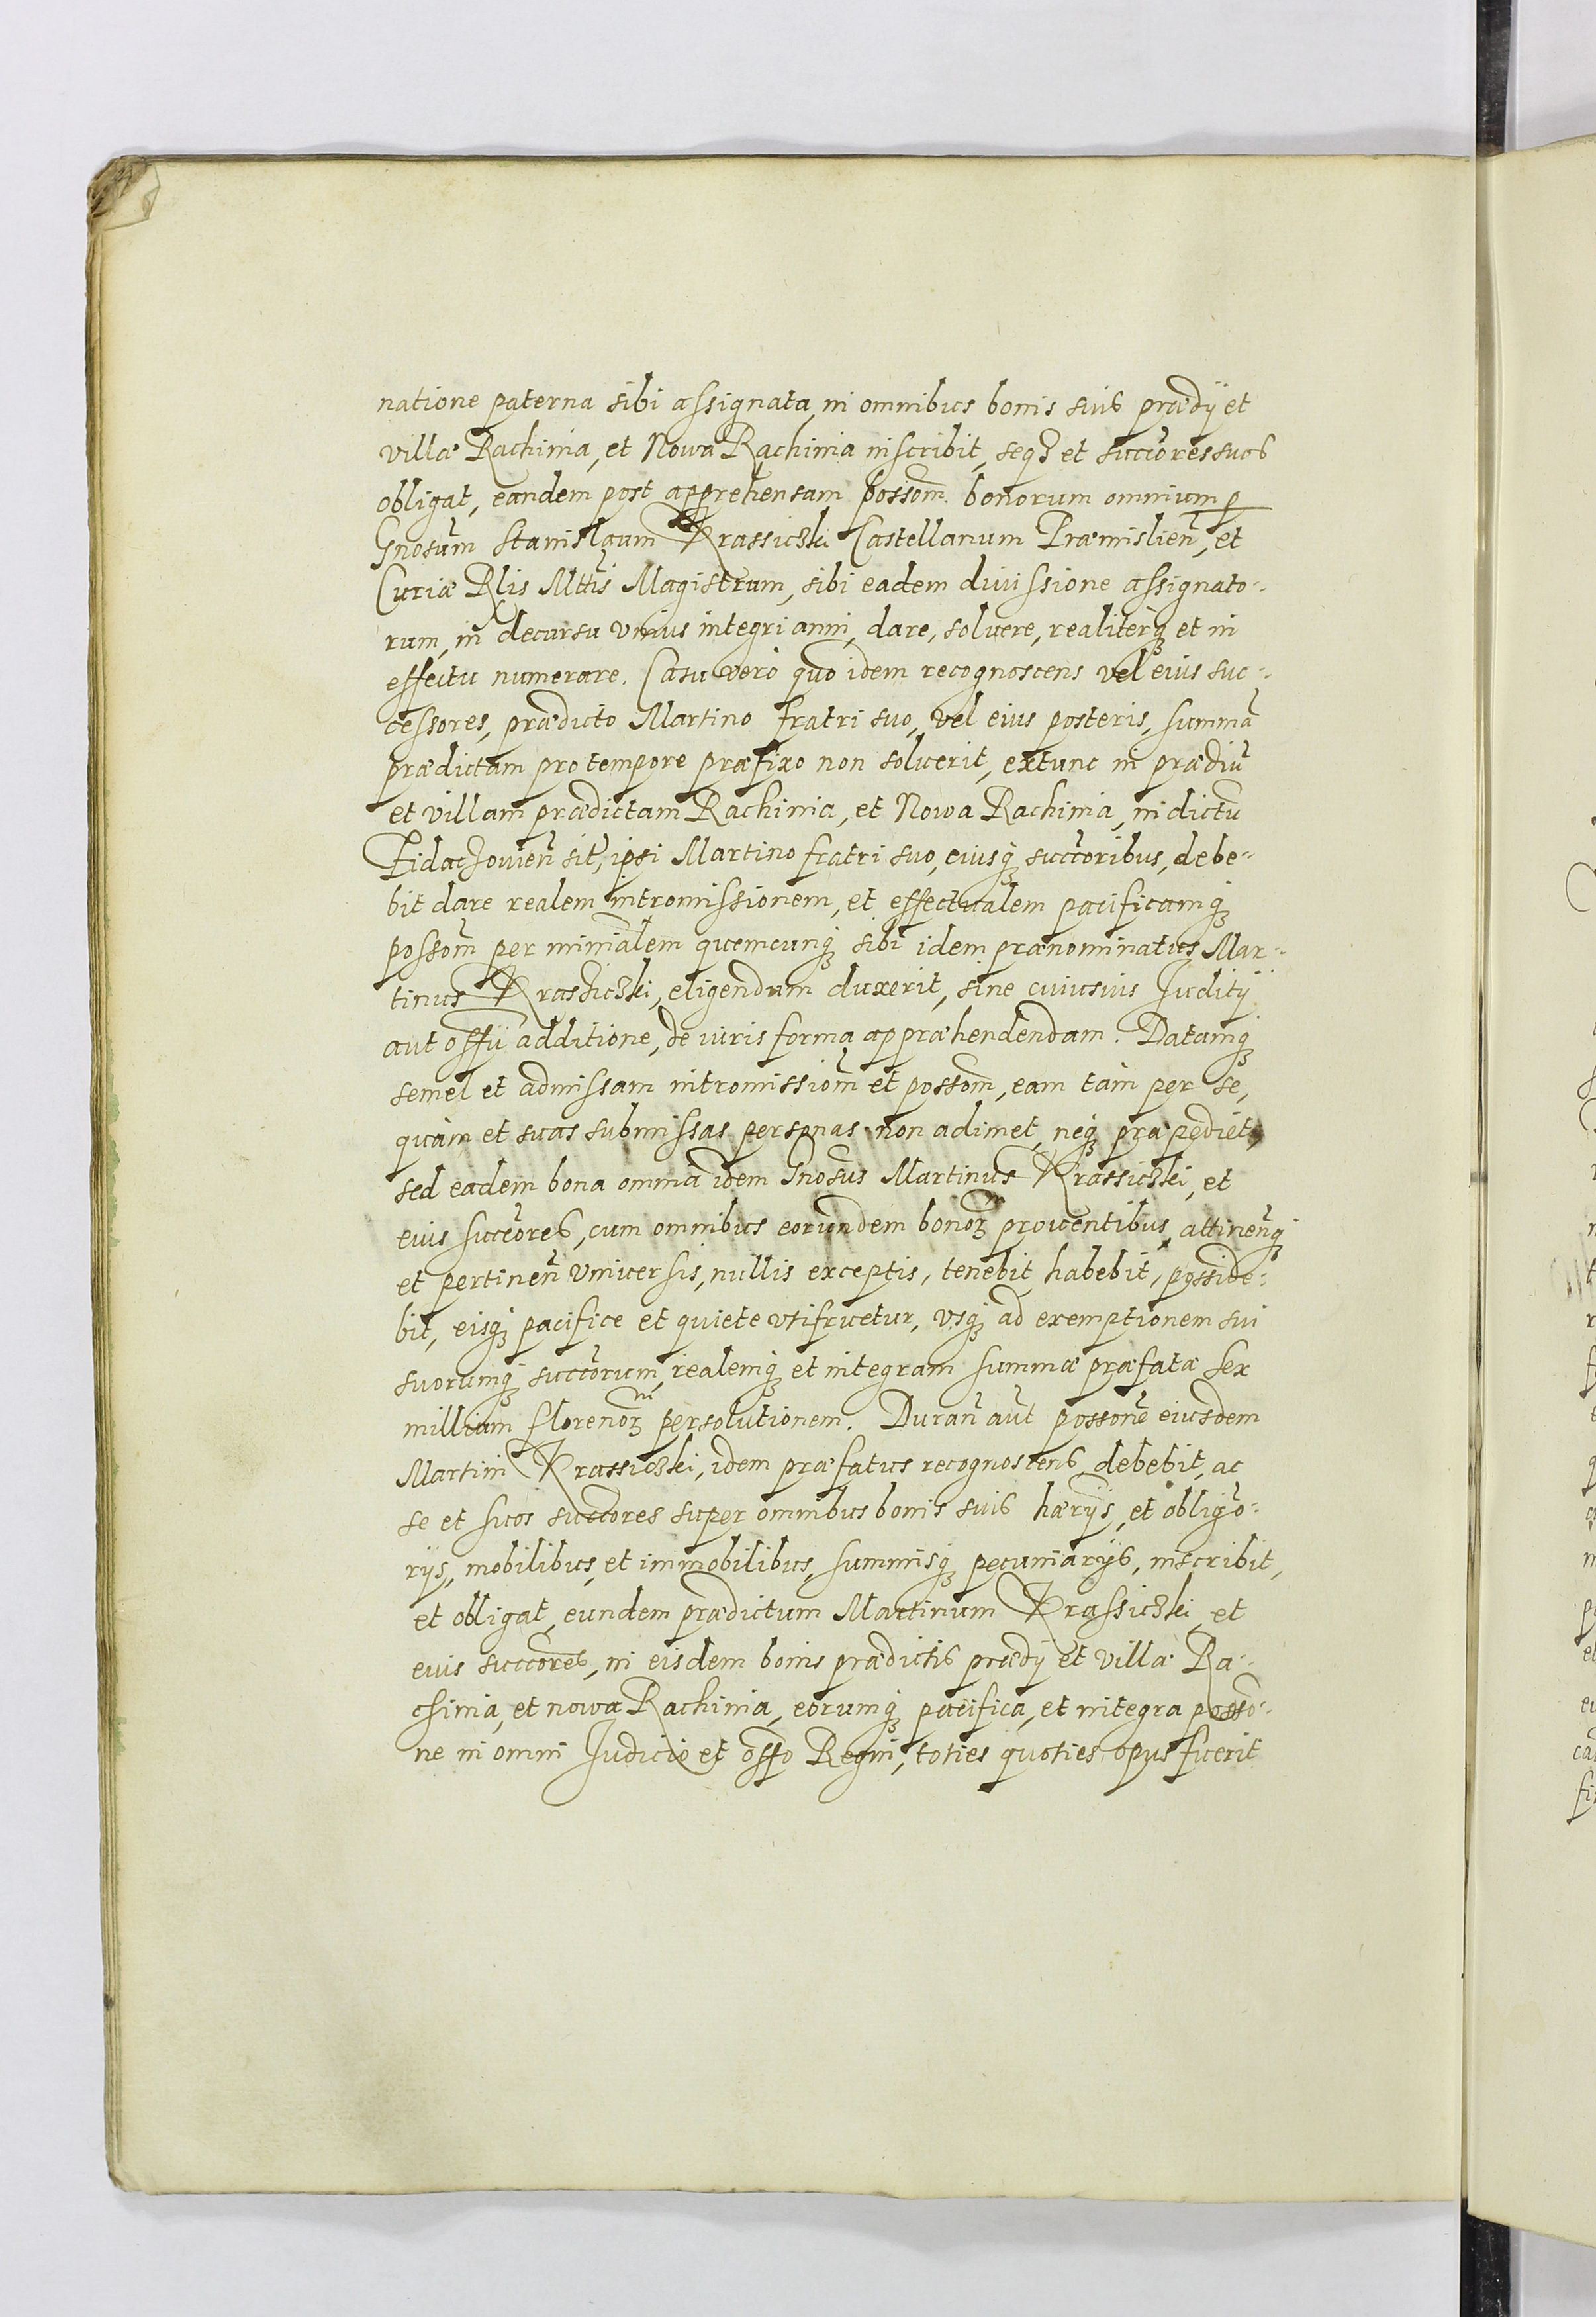 natione paterna sibi assignata, in omnibus bonis suis prædij et
villæ Rachinia, et Nowa Rachinia inscribit, seqꝫ et succ̃ores suos
obligat, eandem post apprehensam possom̃ bonorum omnium ꝑ
Gnosum̃ Stanislaum Krassiczki Castellanum Præmislien̄, et
Curiæ Rl̃is Mttis̃ Magistrum, sibi eadem diuissione assignato-
rum, in decursu vnius integri anni, dare, soluere, realiterqꝫ et in
effectu numerare. Casu verò quo idem recognoscens vel eius suc-
cessores, prædicto Martino fratri suo, vel eius posteris, summã
prædictam pro tempore præfixo non soluerit, extunc in prædiũ
et villam prædictam Rachinia, et Nowa Rachinia, in dictũ
Tidaczouien̄ sit̃, ipsi Martino fratri suo, eiusqꝫ succ̃oribus, debe-
bit dare realem intromissionem, et effectualem pacificamqꝫ
possom̃ per minãlem quemcunqꝫ sibi idem prænominatus Mar-
tinus Krassiczki, eligendum duxerit, sine cuiusuis Juditij
aut offij̃ additione, de iuris forma appræhendendam. Datamqꝫ
semel et admissam intromissiom̃ et possom̃, eam tam per se,
quàm et suas submissas personas non adimet, neqꝫ præpediet,
sed eadem bona omnia idem Gnosus̃ Martinus Krassiczki, et
eius succ̃ores, cum omnibus eorundem bonoꝝ prouentibus, attinen̄qꝫ
et pertinen̄ vniuersis, nullis exceptis, tenebit, habebit, posside-
bit, eisqꝫ pacifice et quiete vtifruetur, vsqꝫ ad exemptionem sui
suorumqꝫ succ̃orum, realemqꝫ et integram summæ præfatæ sex
millium florenoꝝ persolutionem. Duran̄ aut̃ posson̄e eiusdem
Martini Krassiczki, idem præfatus recognoscens, debebit, ac
se et suos succ̃ores super omnibus bonis suis hærijs̃, et obligõ-
rijs, mobilibus, et immobilibus, summisqꝫ pecuniarijs, inscribit,
et obligat, eundem prædictum Martinum Krassiczki, et
eius succ̃ores, in eisdem bonis prædictis prædij et villæ Ra-
chinia, et nowa Rachinia, eorumqꝫ pacifica, et integra possõ-
ne in omni Judicio et offõ Regni, toties quoties opus fuerit